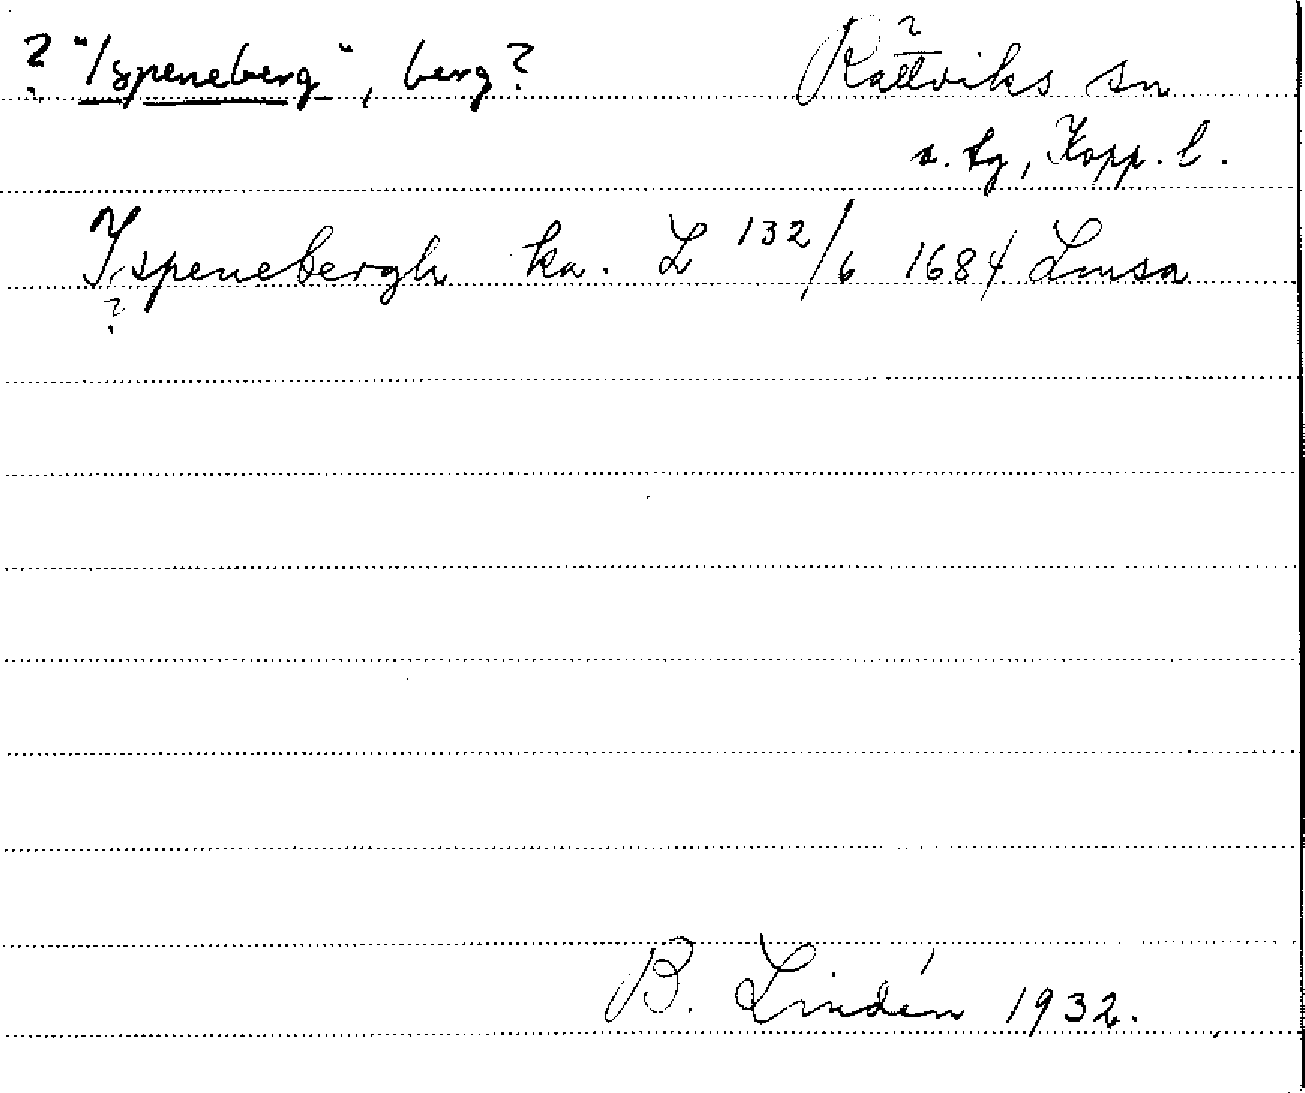 ? "Ispeneberg", berg? Rättviks sn
s. tg, Kopp. l.
Ispenebergh ka. L 132/6 1684 Limsa
?
B. Lindén 1932.